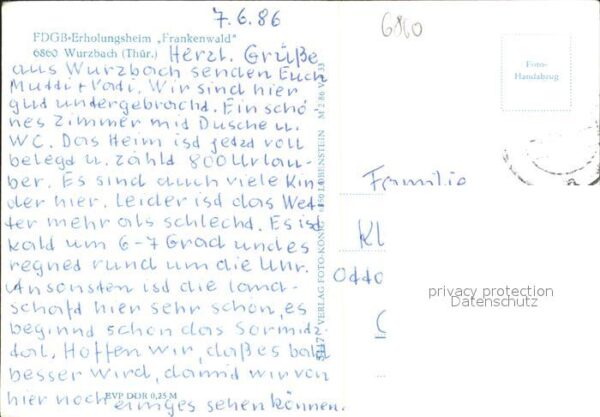 7.6.86
6860
FDGB-Erholungsheim „Frankenwald"
6860 Wurzbach (Thür.)
Herzl. Grüße
aus Wurzbach senden Euch
Mutti + Vati. Wir sind hier
gut untergebracht. Ein schö
nes Zimmer mit Dusche u.
WC. Das Heim ist jetzt voll
belegt u. zählt 800 Urlau-
ber. Es sind auch viele Kin
der hier. Leider ist das Wet-
ter mehr als schlecht. Es ist
kalt um 6-7 Grad und es
regnet rund um die Uhr.
Ansonsten ist die Land-
schaft hier sehr schön, es
beginnt schon das Sormitz-
tal. Hoffen wir, daß es bald
besser wird, damit wir von
hier noch einiges sehen können.
EVP DDR 0,25 M
VERLAG FOTO-KÖNIG LOBENSTEIN
Foto-
Handabzug
Familie
Kl
Otto
privacy protection
Datenschutz